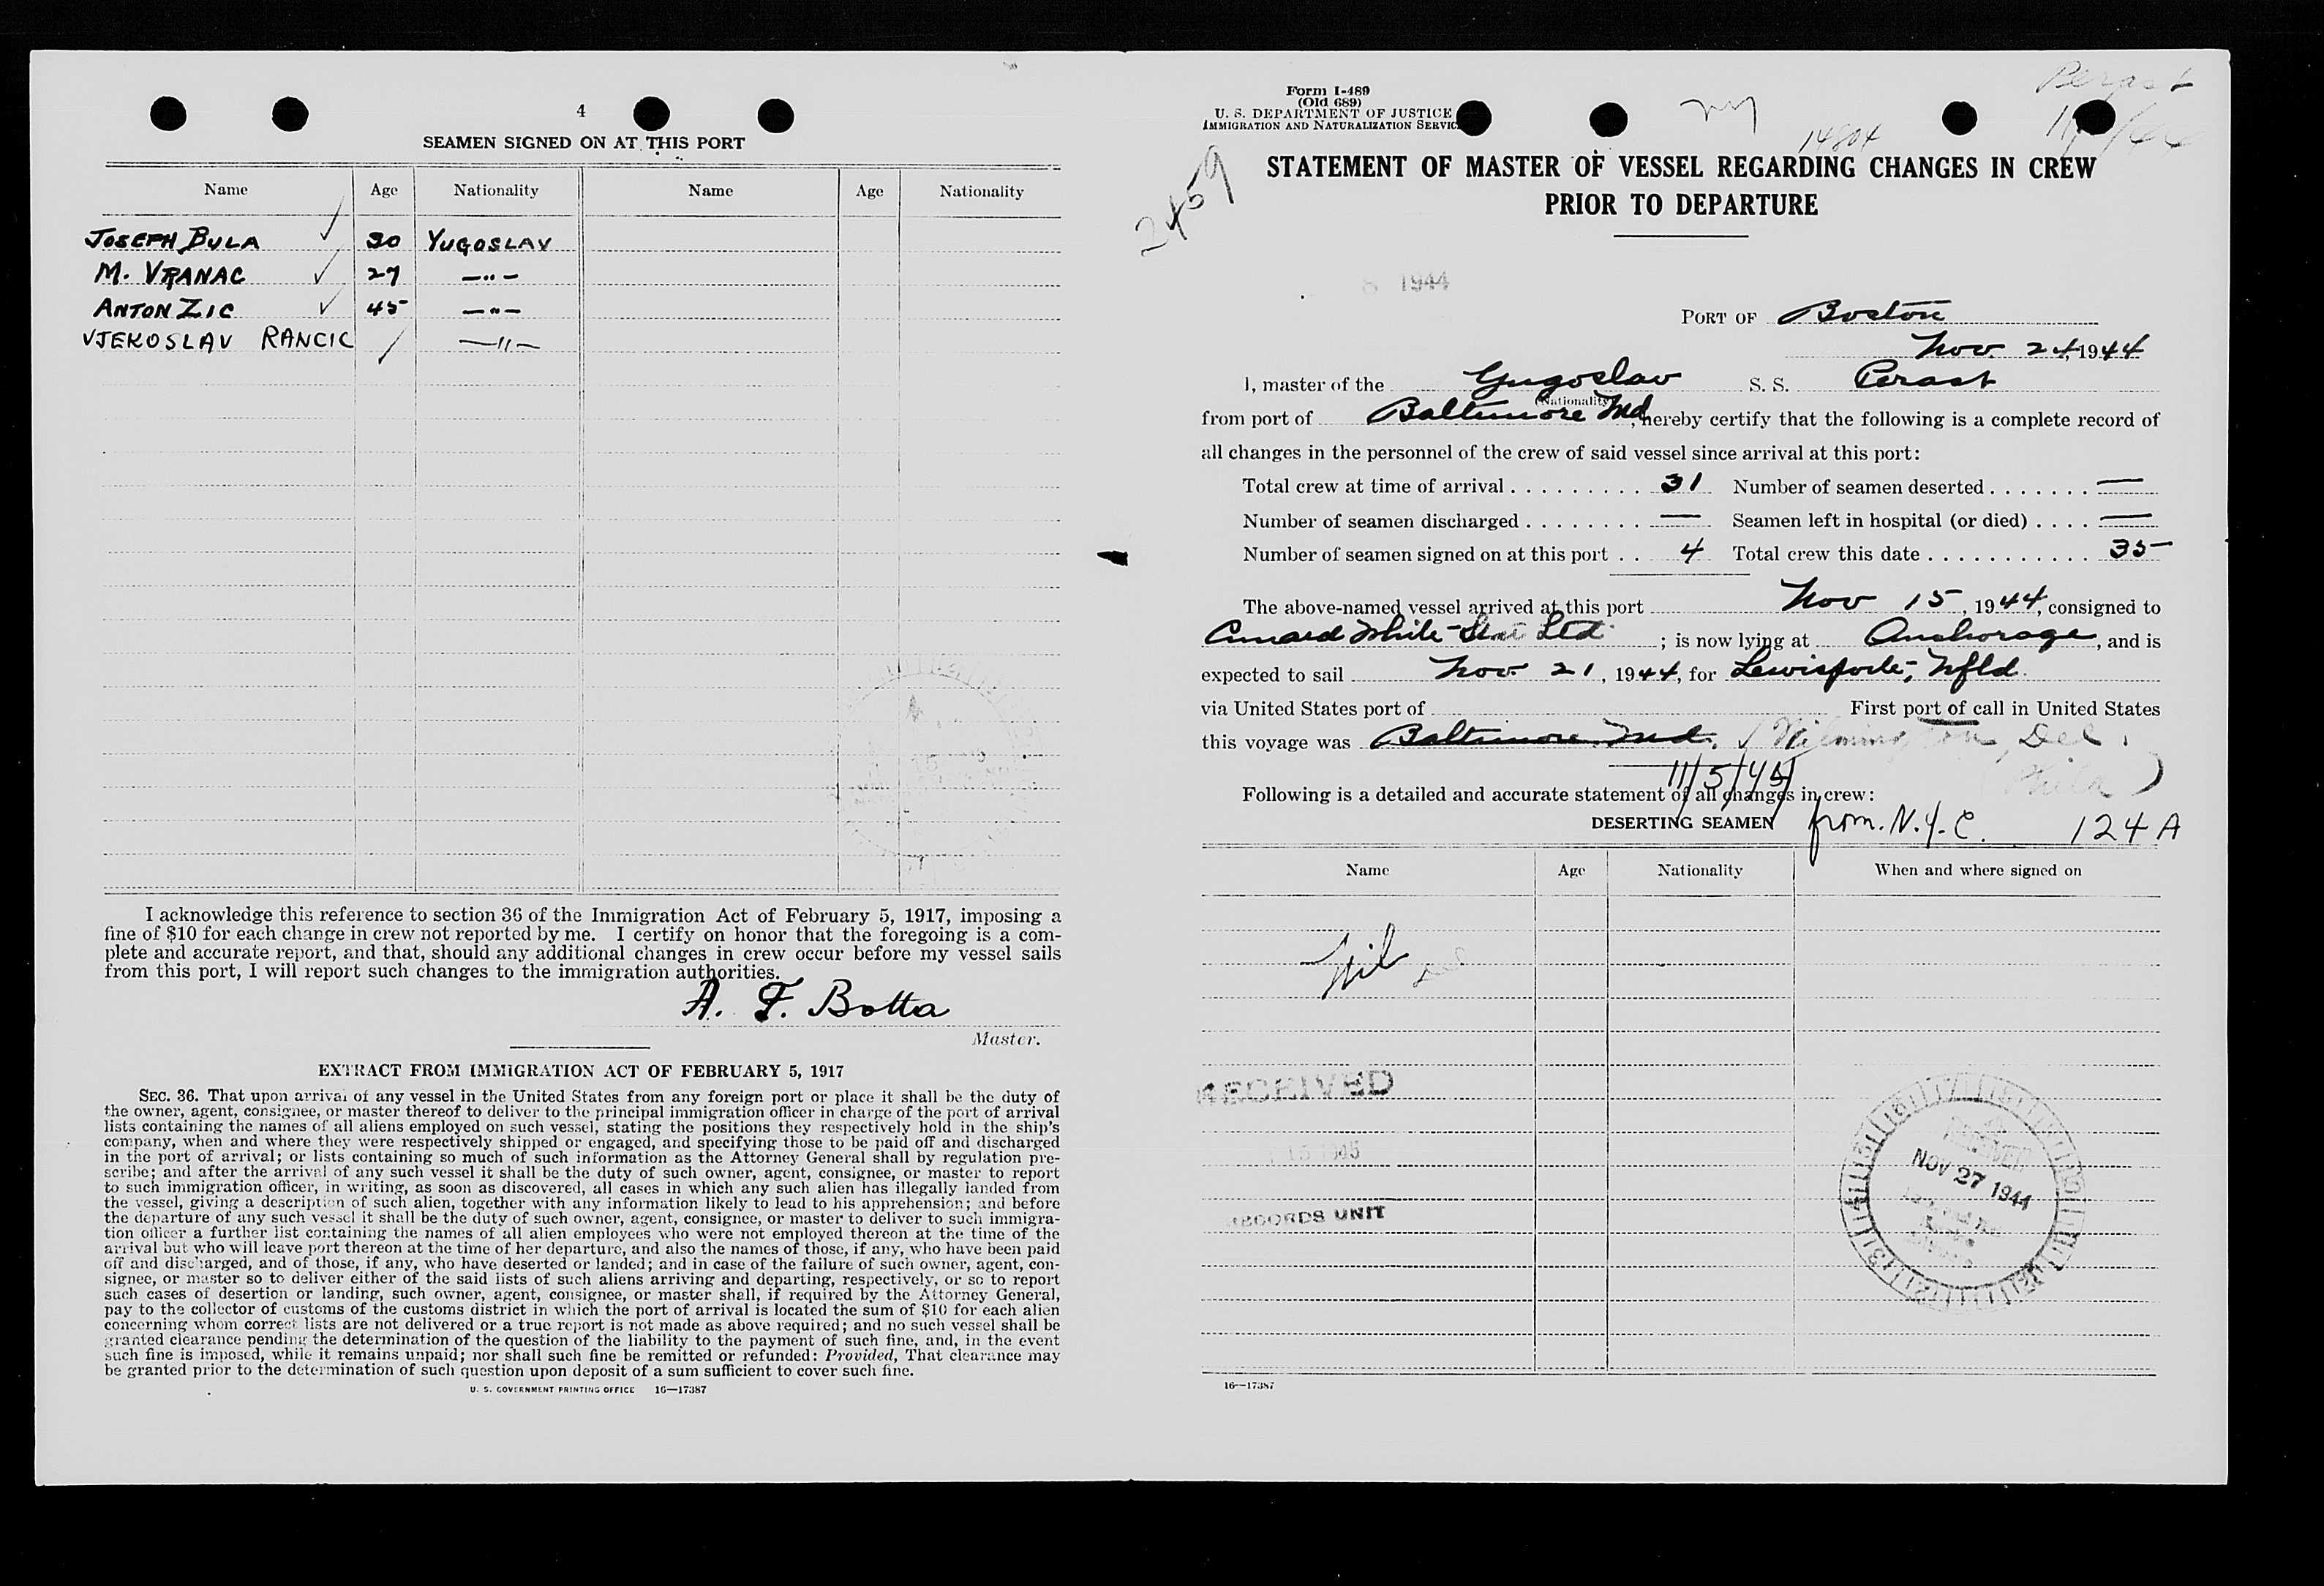 4
SEAMEN SIGNED ON AT THIS PORT
Name Age Nationality Name Age Nationality
JOSEPH BULA 30 YUGOSLAV
M. VRANAC 27 —"—
ANTON ZIC 45 —"—
VJEKOSLAV RANCIC —"—
I acknowledge this reference to section 36 of the Immigration Act of February 5, 1917, imposing a
fine of $10 for each change in crew not reported by me. I certify on honor that the foregoing is a com-
plete and accurate report, and that, should any additional changes in crew occur before my vessel sails
from this port, I will report such changes to the immigration authorities.
A. F. Botta
Master.
EXTRACT FROM IMMIGRATION ACT OF FEBRUARY 5, 1917
SEC. 36. That upon arrival of any vessel in the United States from any foreign port or place it shall be the duty of
the owner, agent, consignee, or master thereof to deliver to the principal immigration officer in charge of the port of arrival
lists containing the names of all aliens employed on such vessel, stating the positions they respectively hold in the ship's
company, when and where they were respectively shipped or engaged, and specifying those to be paid off and discharged
in the port of arrival; or lists containing so much of such information as the Attorney General shall by regulation pre-
scribe; and after the arrival of any such vessel it shall be the duty of such owner, agent, consignee, or master to report
to such immigration officer, in writing, as soon as discovered, all cases in which any such alien has illegally landed from
the vessel, giving a description of such alien, together with any information likely to lead to his apprehension; and before
the departure of any such vessel it shall be the duty of such owner, agent, consignee, or master to deliver to such immigra-
tion officer a further list containing the names of all alien employees who were not employed thereon at the time of the
arrival but who will leave port thereon at the time of her departure, and also the names of those, if any, who have been paid
off and discharged, and of those, if any, who have deserted or landed; and in case of the failure of such owner, agent, con-
signee, or master so to deliver either of the said lists of such aliens arriving and departing, respectively, or so to report
such cases of desertion or landing, such owner, agent, consignee, or master shall, if required by the Attorney General,
pay to the collector of customs of the customs district in which the port of arrival is located the sum of $10 for each alien
concerning whom correct lists are not delivered or a true report is not made as above required; and no such vessel shall be
granted clearance pending the determination of the question of the liability to the payment of such fine, and, in the event
such fine is imposed, while it remains unpaid; nor shall such fine be remitted or refunded: Provided, That clearance may
be granted prior to the determination of such question upon deposit of a sum sufficient to cover such fine.
U. S. GOVERNMENT PRINTING OFFICE 16—17387
Form I-489
(Old 689)
U. S. DEPARTMENT OF JUSTICE
IMMIGRATION AND NATURALIZATION SERVIC
ny
Perast
14804
2459
STATEMENT OF MASTER OF VESSEL REGARDING CHANGES IN CREW
PRIOR TO DEPARTURE
8 1944
PORT OF Boston
Nov. 24, 1944
I, master of the Yugoslav S. S. Perast
(Nationality)
from port of Baltimore Md, hereby certify that the following is a complete record of
all changes in the personnel of the crew of said vessel since arrival at this port:
Total crew at time of arrival . . . . . . . . . 31 Number of seamen deserted . . . . . . . —
Number of seamen discharged . . . . . . . . — Seamen left in hospital (or died) . . . . —
Number of seamen signed on at this port . . 4 Total crew this date . . . . . . . . . . . . 35
The above-named vessel arrived at this port Nov 15, 1944, consigned to
Cunard White-Star Ltd ; is now lying at Anchorage, and is
expected to sail Nov. 21, 1944, for Lewisporte, Nfld.
via United States port of First port of call in United States
this voyage was Baltimore Md. Wilmington, Del.
Phila)
11/5/45
Following is a detailed and accurate statement of all changes in crew:
DESERTING SEAMEN from. N.Y.C. 124 A
Name Age Nationality When and where signed on
Nil
RECEIVED
15 1945
RECORDS UNIT
RECEIVED
NOV 27 1944
16—17387